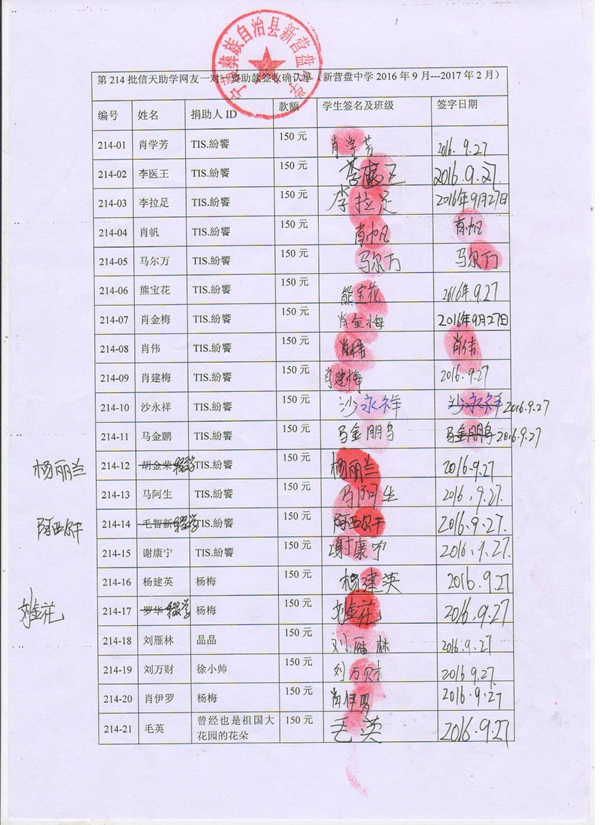 宁蒗彝族自治县新营盘中学
第 214 批信天助学网友一对一资助款签收确认单（新营盘中学 2016 年 9 月---2017 年 2 月）
编号 姓名 捐助人 ID 款额 学生签名及班级 签字日期
214-01 肖学芳 TIS.纷饗 150 元 肖学芳 2016.9.27
214-02 李医王 TIS.纷饗 150 元 李医王 2016.9.27.
214-03 李拉足 TIS.纷饗 150 元 李拉足 2016年9月27日
214-04 肖帆 TIS.纷饗 150 元 肖帆 肖帆
214-05 马尔万 TIS.纷饗 150 元 马尔万 马尔万
214-06 熊宝花 TIS.纷饗 150 元 熊宝花 2016年9.27
214-07 肖金梅 TIS.纷饗 150 元 肖金梅 2016年9月27日
214-08 肖伟 TIS.纷饗 150 元 肖伟 肖伟
214-09 肖建梅 TIS.纷饗 150 元 肖建梅 2016.9.27
214-10 沙永祥 TIS.纷饗 150 元 沙永祥 沙永祥 2016.9.27
214-11 马金鹏 TIS.纷饗 150 元 马金鹏 马金鹏 2016.9.27
杨丽兰 214-12 胡金荣 辍学 TIS.纷饗 150 元 杨丽兰 2016.9.27
214-13 马阿生 TIS.纷饗 150 元 马阿生 2016.9.27.
214-14 毛智新 辍学 TIS.纷饗 150 元 2016.9.27.
214-15 谢康宁 TIS.纷饗 150 元 谢康宁 2016.9.27.
214-16 杨建英 杨梅 150 元 杨建英 2016.9.27
刘金花 214-17 罗华 辍学 杨梅 150 元 刘金花 2016.9.27
214-18 刘雁林 晶晶 150 元 刘雁林 2016.9.27
214-19 刘万财 徐小帅 150 元 刘万财 2016.9.27
214-20 肖伊罗 杨梅 150 元 肖伊罗 2016.9.27
214-21 毛英 曾经也是祖国大 150 元 毛英 2016.9.27
花园的花朵